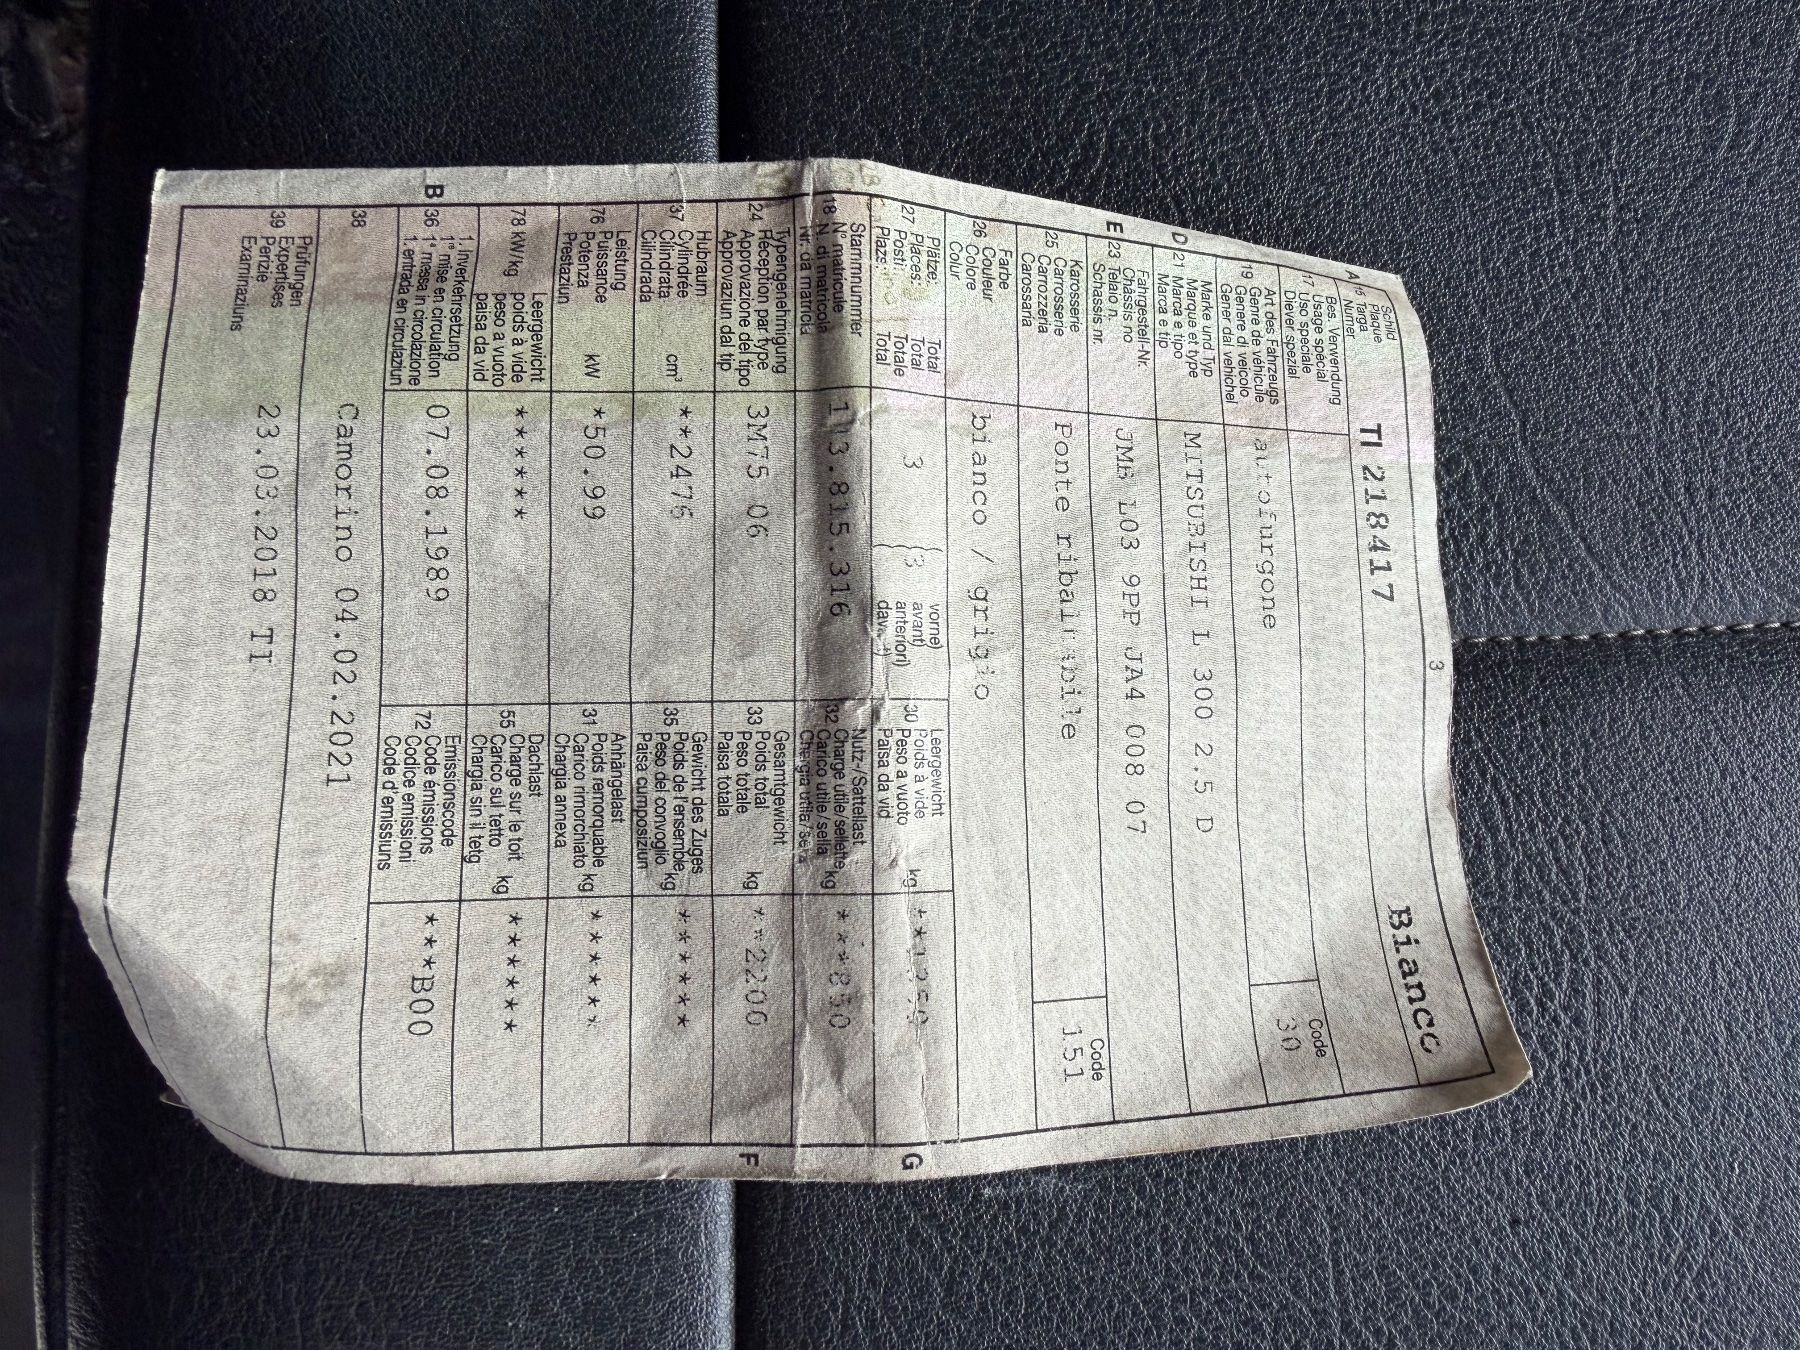 3
A
Schild
Plaque
15 Targa
Numer
TI 218417
Bianco
Bes. Verwendung
Usage spécial
17 Uso speciale
Diever spezial
Art des Fahrzeugs
19 Genre de véhicule
Genere di veicolo
Gener dal vehichel
autofurgone
Code
30
D
Marke und Typ
21 Marque et type
Marca e tipo
Marca e tip
MITSUBISHI L 300 2.5 D
E
Fahrgestell-Nr.
Châssis no
23 Telaio n.
Schassis nr.
JMB L03 9PP JA4 008 07
Karosserie
25 Carrosserie
Carrozzeria
Carrossaria
Ponte ribaltabile
Code
151
Farbe
26 Couleur
Colore
Colur
bianco / grigio
Plätze: Total
27 Places: Total
Posti: Totale
Plazs: Total
3
(3
vorne)
avant)
anteriori)
Leergewicht
30 Poids à vide
Peso a vuoto
Paisa da vid
kg
G
Stammnummer
18 N° matricule
N. di matricola
Nr. da matricla
113.815.316
Nutz-/Sattellast
32 Charge utile/sellette kg
Carico utile/sella
***850
Typengenehmigung
24 Réception par type
Approvazione del tipo
Approvaziun dal tip
3M75 06
Gesamtgewicht
33 Poids total
Peso totale kg
Paisa totala
**2200
F
Hubraum
37 Cylindrée
Cilindrata cm³
Cilindrada
**2476
Gewicht des Zuges
35 Poids de l'ensemble
Peso del convoglio kg
Paisa cumposiziun
******
Leistung
76 Puissance
Potenza kW
Prestaziun
*50.99
Anhängelast
31 Poids remorquable
Carico rimorchiato kg
Chargia annexa
******
Leergewicht
78 kW/kg poids à vide
peso a vuoto
paisa da vid
******
Dachlast
55 Charge sur le toit
Carico sul tetto kg
Chargia sin il tetg
******
B
1. Inverkehrsetzung
36 1re mise en circulation
1a messa in circolazione
1. entrada en circulaziun
07.08.1989
Emissionscode
72 Code émissions
Codice emissioni
Code d'emissiuns
***B00
38
Camorino 04.02.2021
Prüfungen
39 Expertises
Perizie
Examinaziuns
23.03.2018 TI